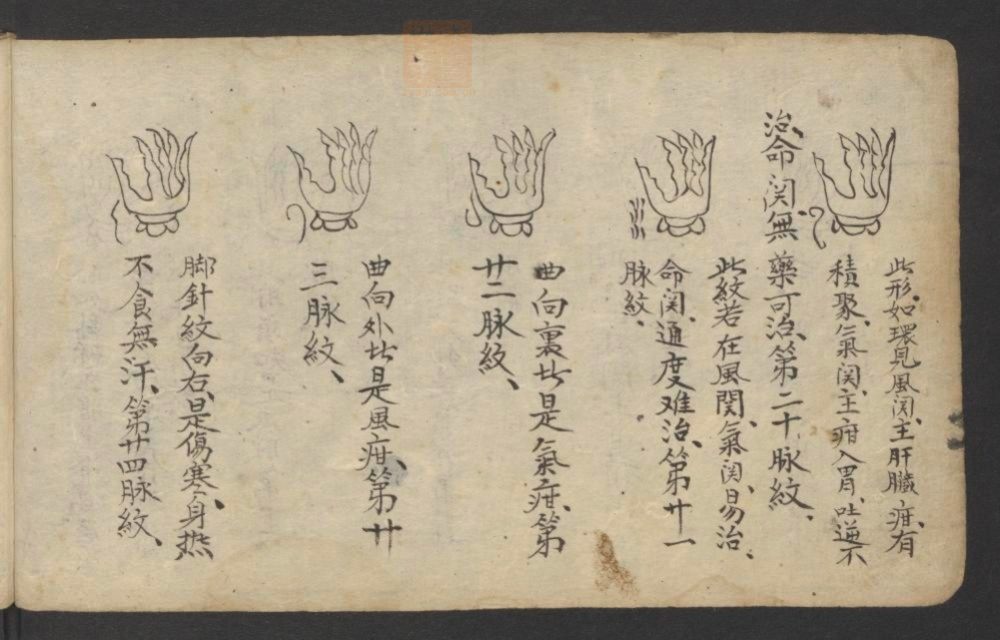 此形如環見風関、主肝臟疳、有
積聚、氣関、主疳入胃、吐逆不
治、命関、無藥可治、第二十脉紋、
此紋若在風関、氣関、易治、
命関、通度难治、第廿一
脉紋、
曲向裏此是氣疳、第
廿二脉紋、
曲向外此是風疳、第廿
三脉紋、
脚針紋向右、是傷寒、身热
不食無汗、第廿四脉紋、